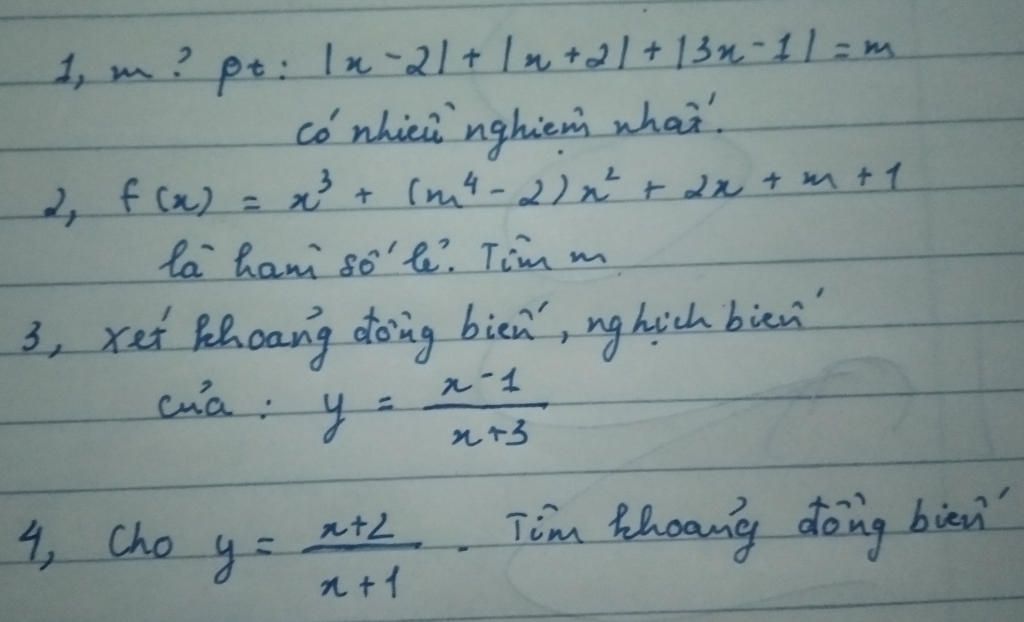 1, m? pt: |x-2| + |x+2| + |3x-1| = m
có nhiều nghiệm nhất.
2, f(x) = x³ + (m⁴-2)x² + 2x + m + 1
là hàm số lẻ. Tìm m
3, xét khoảng đồng biến, nghịch biến
của: y = (x-1)/(x+3)
4, Cho y = (x+2)/(x+1). Tìm khoảng đồng biến